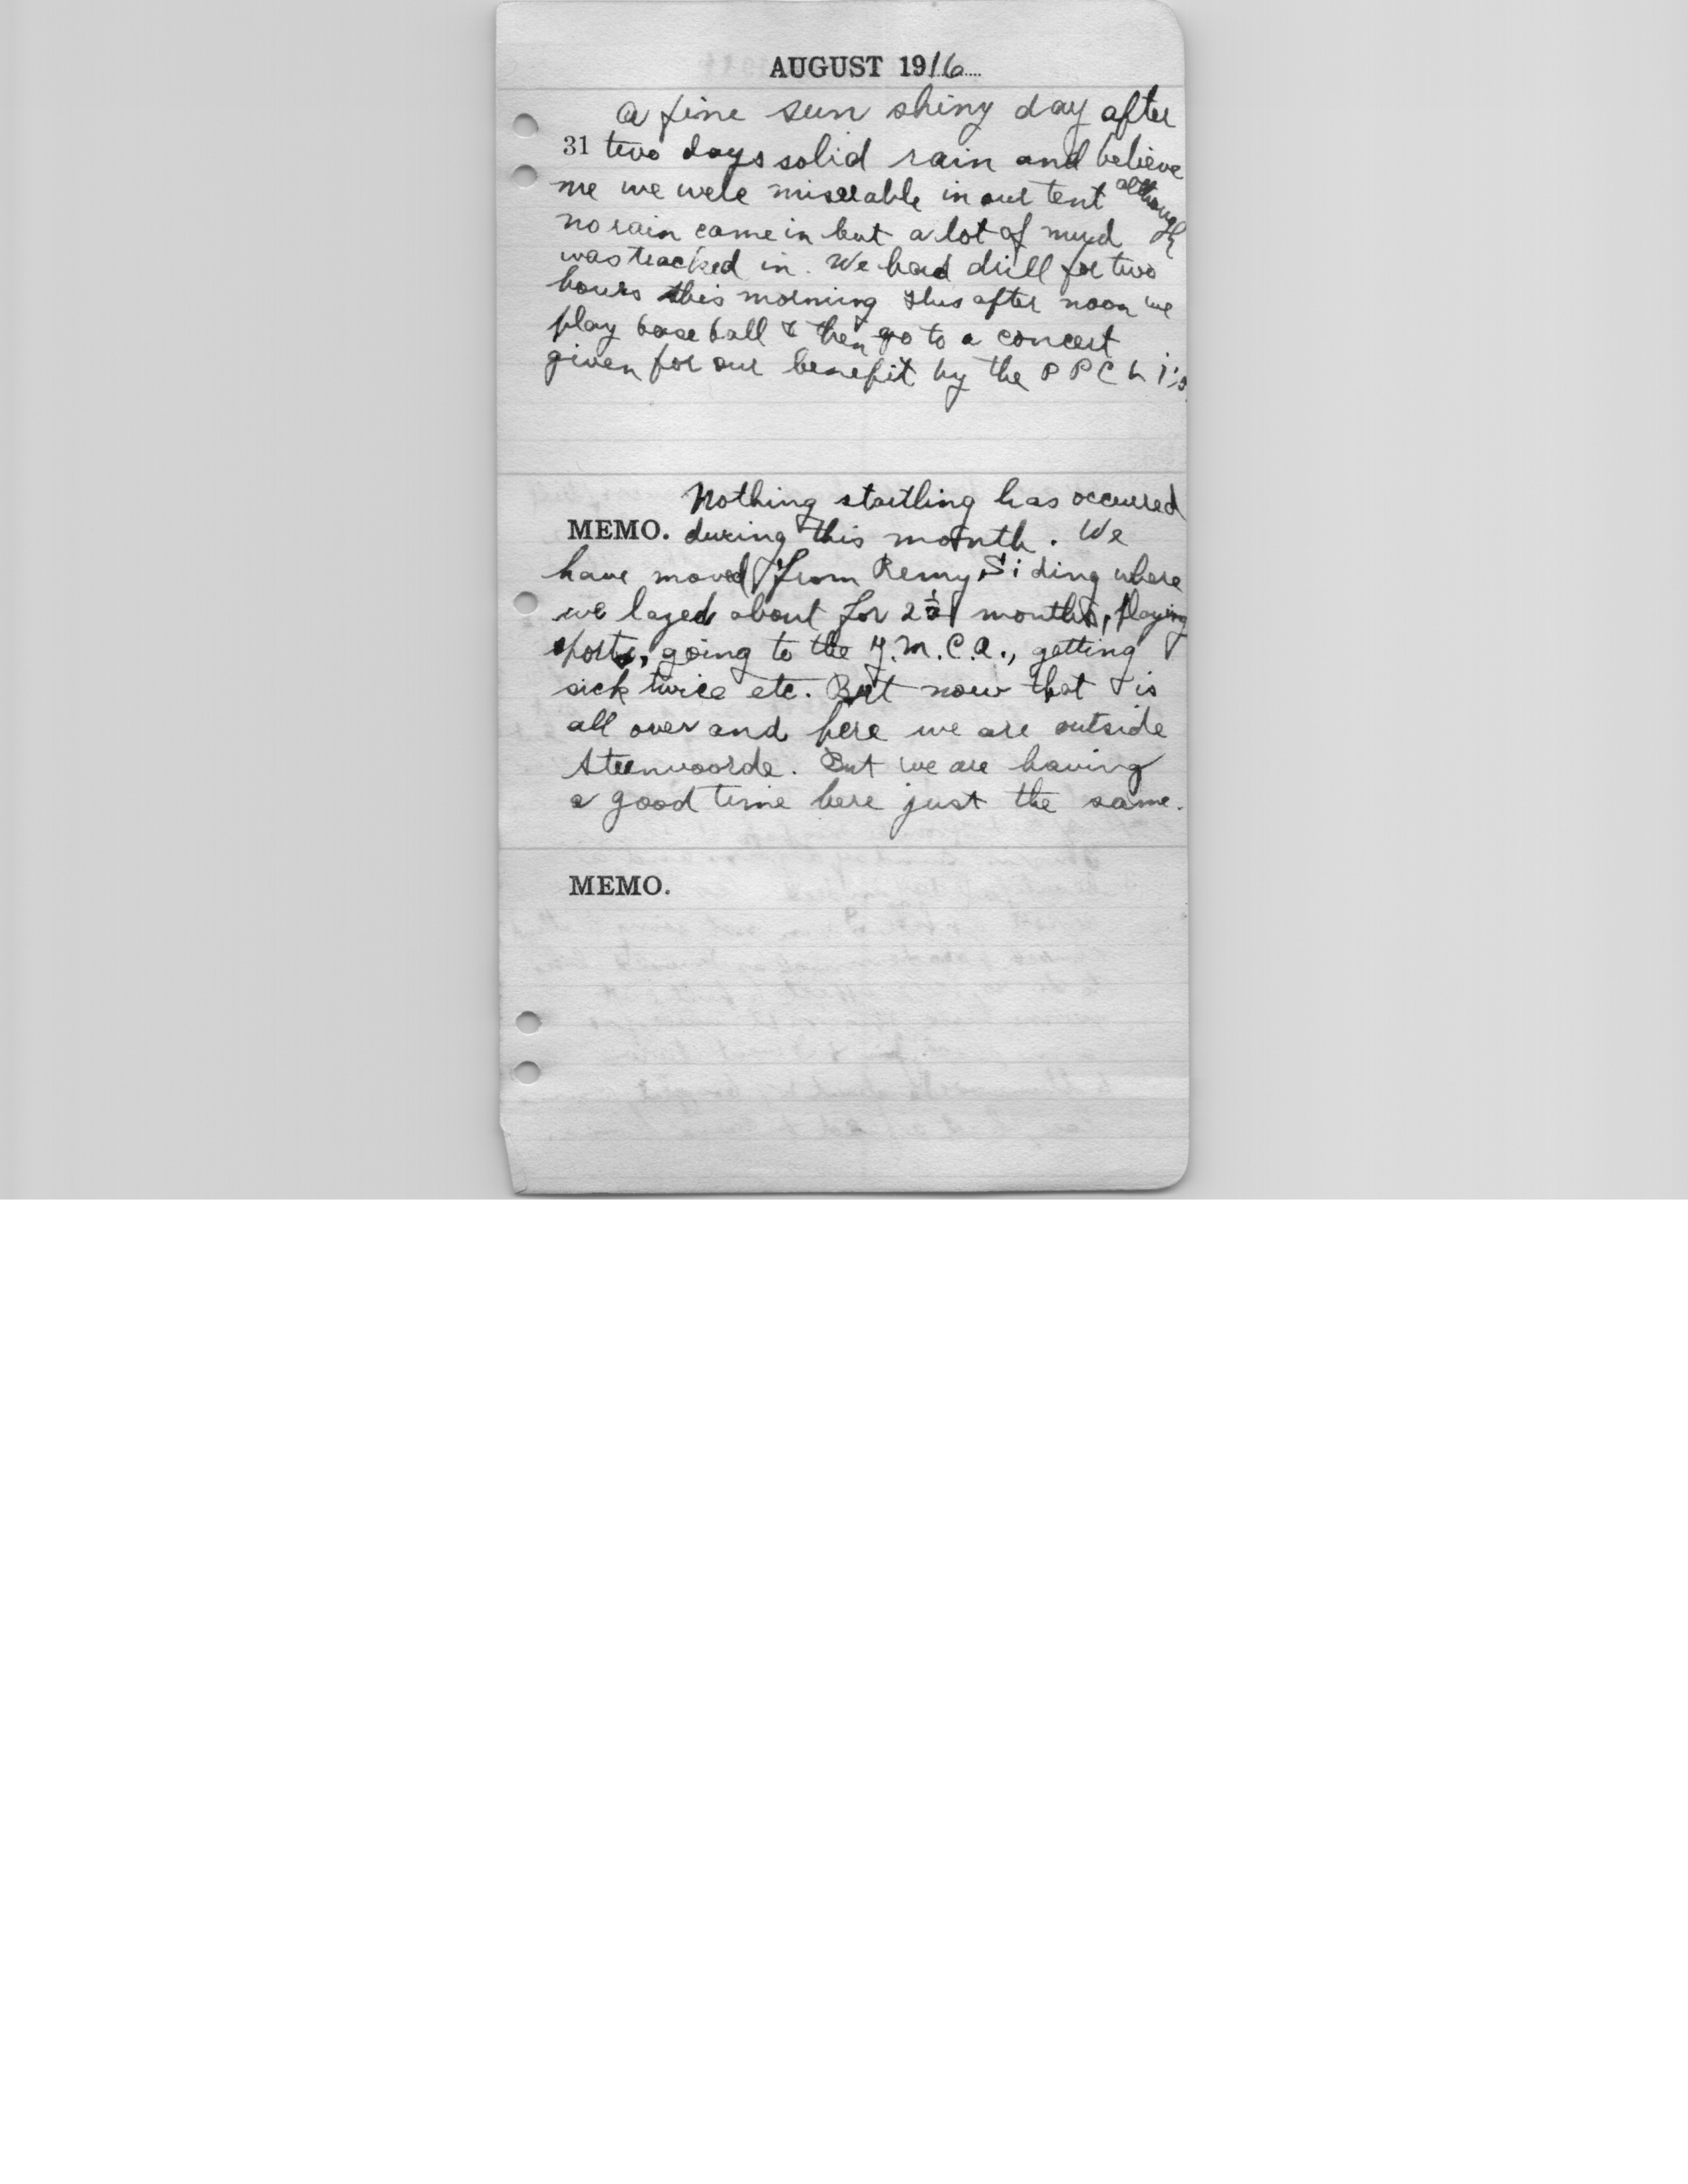 AUGUST 1916
A fine sun shiny day after
31 two days solid rain and believe
me we were miserable in our tent although
no rain came in but a lot of mud
was tracked in. We had drill for two
hours this morning this after noon we
play base ball & then go to a concert
given for our benefit by the P P C L I's
Nothing startling has occurred
MEMO. during this month. We
have moved from Remy Siding where
we lazed about for 2½ months, playing
sports, going to the Y.M.C.A., getting
sick twice etc. But now that is
all over and here we are outside
Steenvoorde. But we are having
a good time here just the same.
MEMO.